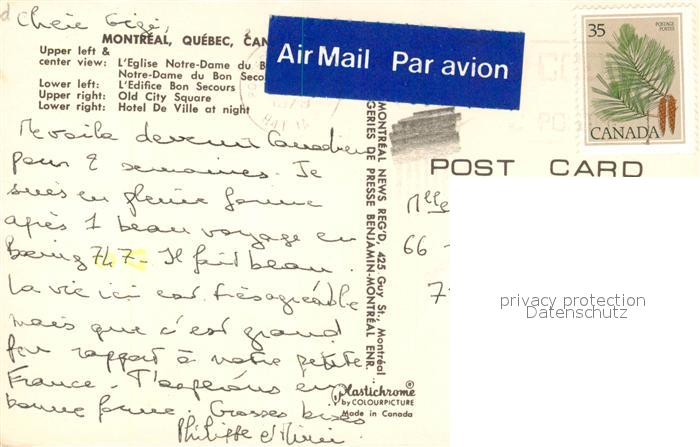 Chère Gégé,
MONTRÉAL, QUÉBEC, CAN
Upper left &
center view: L'Eglise Notre-Dame du B
Notre-Dame du Bon Seco
Lower left: L'Edifice Bon Secours
Upper right: Old City Square
Lower right: Hotel De Ville at night
Air Mail Par avion
35
POSTAGE
POSTES
CANADA
Me voila devenu Canadien
pour 2 semaines. Je
suis en pleine forme
après 1 beau voyage en
Boeing 747. Il fait beau.
La vie ici est très agréable
mais que c'est grand
par rapport à notre petite
France. T'espérons en
bonne forme. Grosses bises
Philippe et
MONTREAL NEWS REG'D, 425 Guy St., Montréal
GERIES DE PRESSE BENJAMIN-MONTRÉAL ENR.
Plastichrome ®
by COLOURPICTURE
Made in Canada
POST CARD
Mlle
66
7
privacy protection
Datenschutz